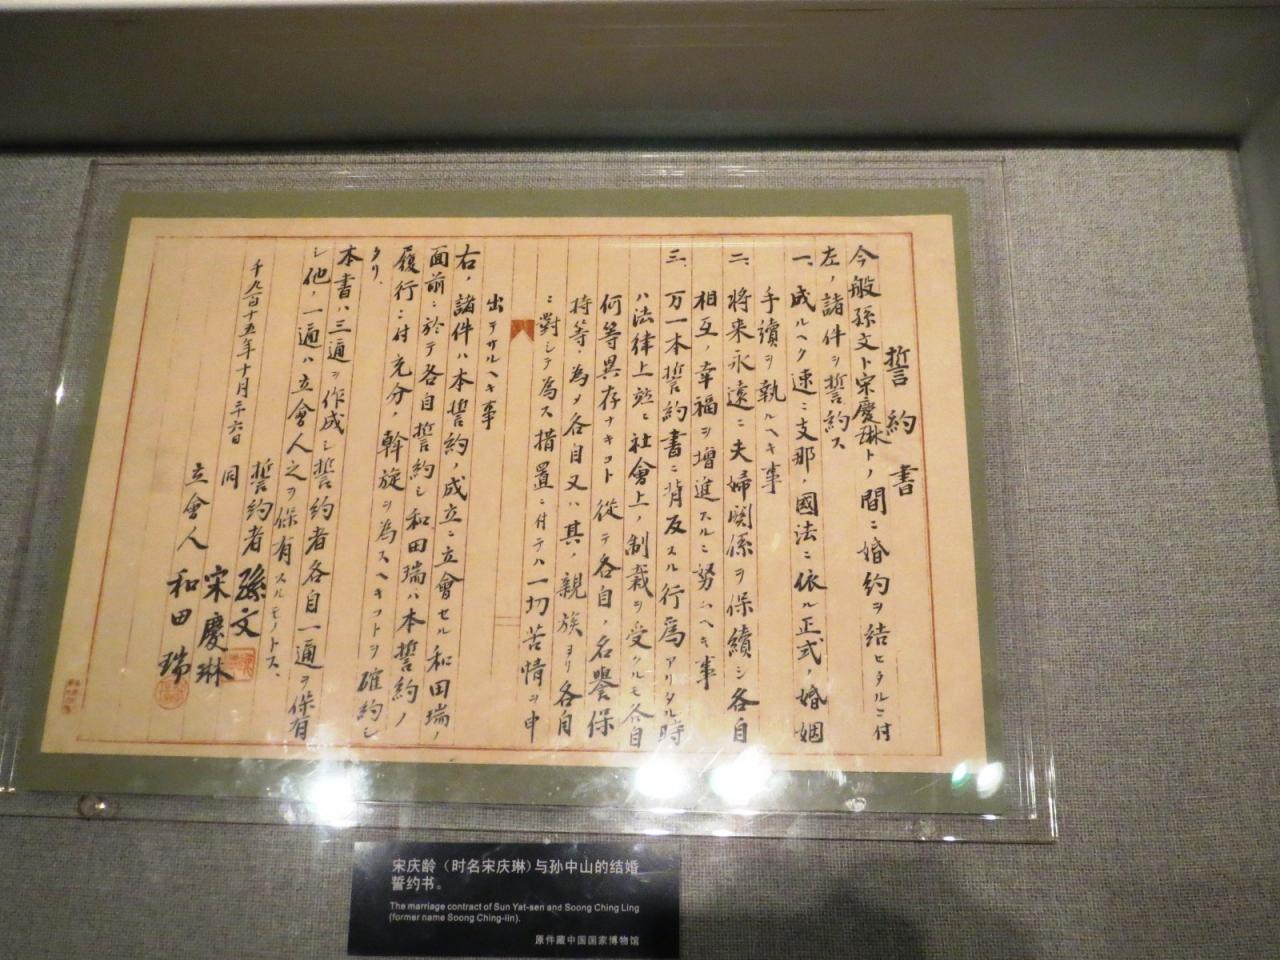 誓約書
今般孫文ト宋慶琳トノ間ニ婚約ヲ結ヒタルニ付
左ノ諸件ヲ誓約ス
一、成ルヘク速ニ支那ノ國法ニ依ル正式ノ婚姻
手續ヲ執ルヘキ事
二、将来永遠ニ夫婦関係ヲ保續シ各自
相互ノ幸福ヲ増進スルニ努ムヘキ事
三、万一本誓約書ニ背反スル行為アリタル時
ハ法律上並ニ社會上ノ制裁ヲ受クルモ各自
何等異存ナキコト従テ各自ノ名譽保
持等ノ為メ各自又ハ其ノ親族ヨリ各自
ニ對シテ為ス措置ニ付テハ一切苦情ヲ申
出テサルヘキ事
右ノ諸件ハ本誓約ノ成立ニ立會セル和田瑞ノ
面前ニ於テ各自誓約シ和田瑞ハ本誓約ノ
履行ニ付充分ノ斡旋ヲ為スヘキコトヲ確約シ
タリ、
本書ハ三通ヲ作成シ誓約者各自一通ヲ保有
シ他ノ一通ハ立會人之ヲ保有スルモノトス、
千九百十五年十月二十六日
誓約者 孫文
同 宋慶琳
立會人 和田瑞
宋庆龄（时名宋庆琳）与孙中山的结婚
誓约书。
The marriage contract of Sun Yat-sen and Soong Ching Ling
(former name Soong Ching-lin).
原件藏中国国家博物馆